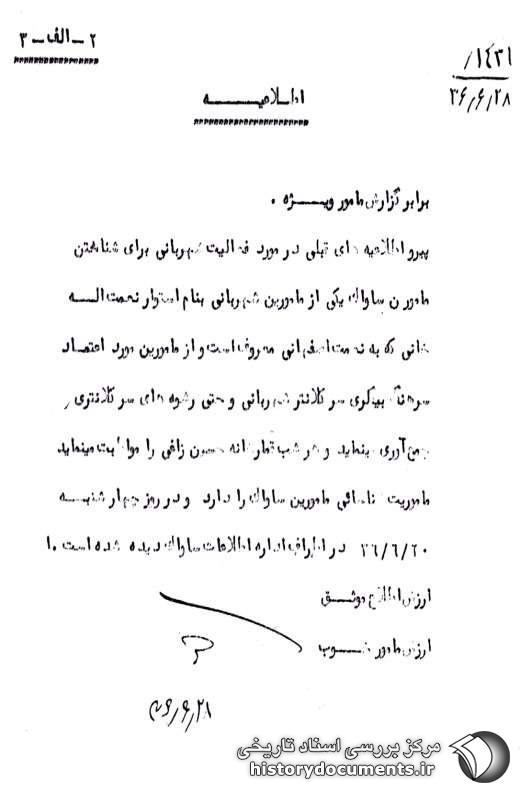 ۲ – الف – ۳
۱۴۳۱/
۳۶/۶/۲۸
اطلاعیه
برابر گزارش مامور ویژه ۰
پیرو اطلاعیه های قبلی در مورد فعالیت شهربانی برای شناختن
مامورین ساواک یکی از مامورین شهربانی بنام استوار نعمت اله
خانی که به نعمت اصفهانی معروف است و از مامورین مورد اعتماد
سرهنگ بیگلری سر کلانتر شهربانی و حتی رشوه های سر کلانتری
جمع آوری مینماید و هر شب قمارخانه حسین زاغی را مواظبت مینماید
ماموریت شناسائی مامورین ساواک را دارد و در روز چهار شنبه
۳۶/۶/۲۰ در اطراف اداره اطلاعات ساواک دیده شده است ۰ ا
ارزش اطلاع موثق
ارزش مامور خوب
۳۶/۶/۲۸
مرکز بررسی اسناد تاریخی
historydocuments.ir